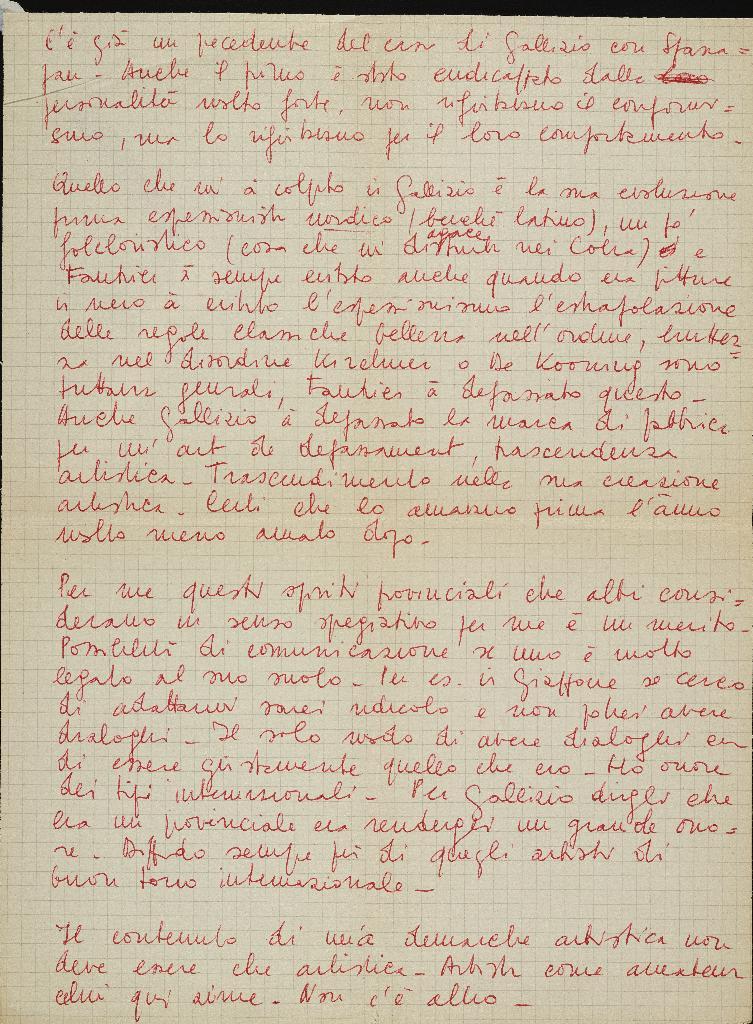 C'è già un pecedente del caso di Gallizio con Spaza=
pan - Anche il primo è stato endicappato dalla
personalità molto forte, non rifiutavano il confor=
smo, ma lo rifiutavano per il loro comportamento.
Quello che m'à colpito in Gallizio è la sua evoluzione
prima espressionista nordico (benchè latino), un po'
folcloristico (cosa che m'agace disturba nei Cobra) e
Fautrier à sempre evitato anche quando era pittura
in nero à evitato l'espressionismo l'estrapolazione
delle regole classiche bellezza nell'ordine, bruttez=
za nel disordine Kirchner o De Kooning sono
tuttavia generali, Fautrier à depassato questo -
Anche Gallizio à depassato la marca di fabbrica
per un' art de depassament, trascendenza
artistica - Trascendimento nella sua creazione
artistica. Certi che lo amavano prima l'ànno
molto meno amato dopo -
Per me questi spiriti provinciali che altri consi=
derano in senso spregiativo per me è un merito.
Possibilità di comunicazione se uno è molto
legato al suo suolo - Per es. in Giappone se cerco
di adattarmi sarei ridicolo e non potrei avere
dialoghi - Il solo modo di avere dialoghi era
di essere giustamente quello che ero - Ho orrore
dei tipi internazionali - Per Gallizio dirgli che
era un provinciale era rendergli un grande ono=
re. Diffido sempre più di quegli artisti di
buon tono internazionale -
Il contenuto di una demarche artistica non
deve essere che artistica - Artista come amateur
celui qui aime - Non c'è altro -